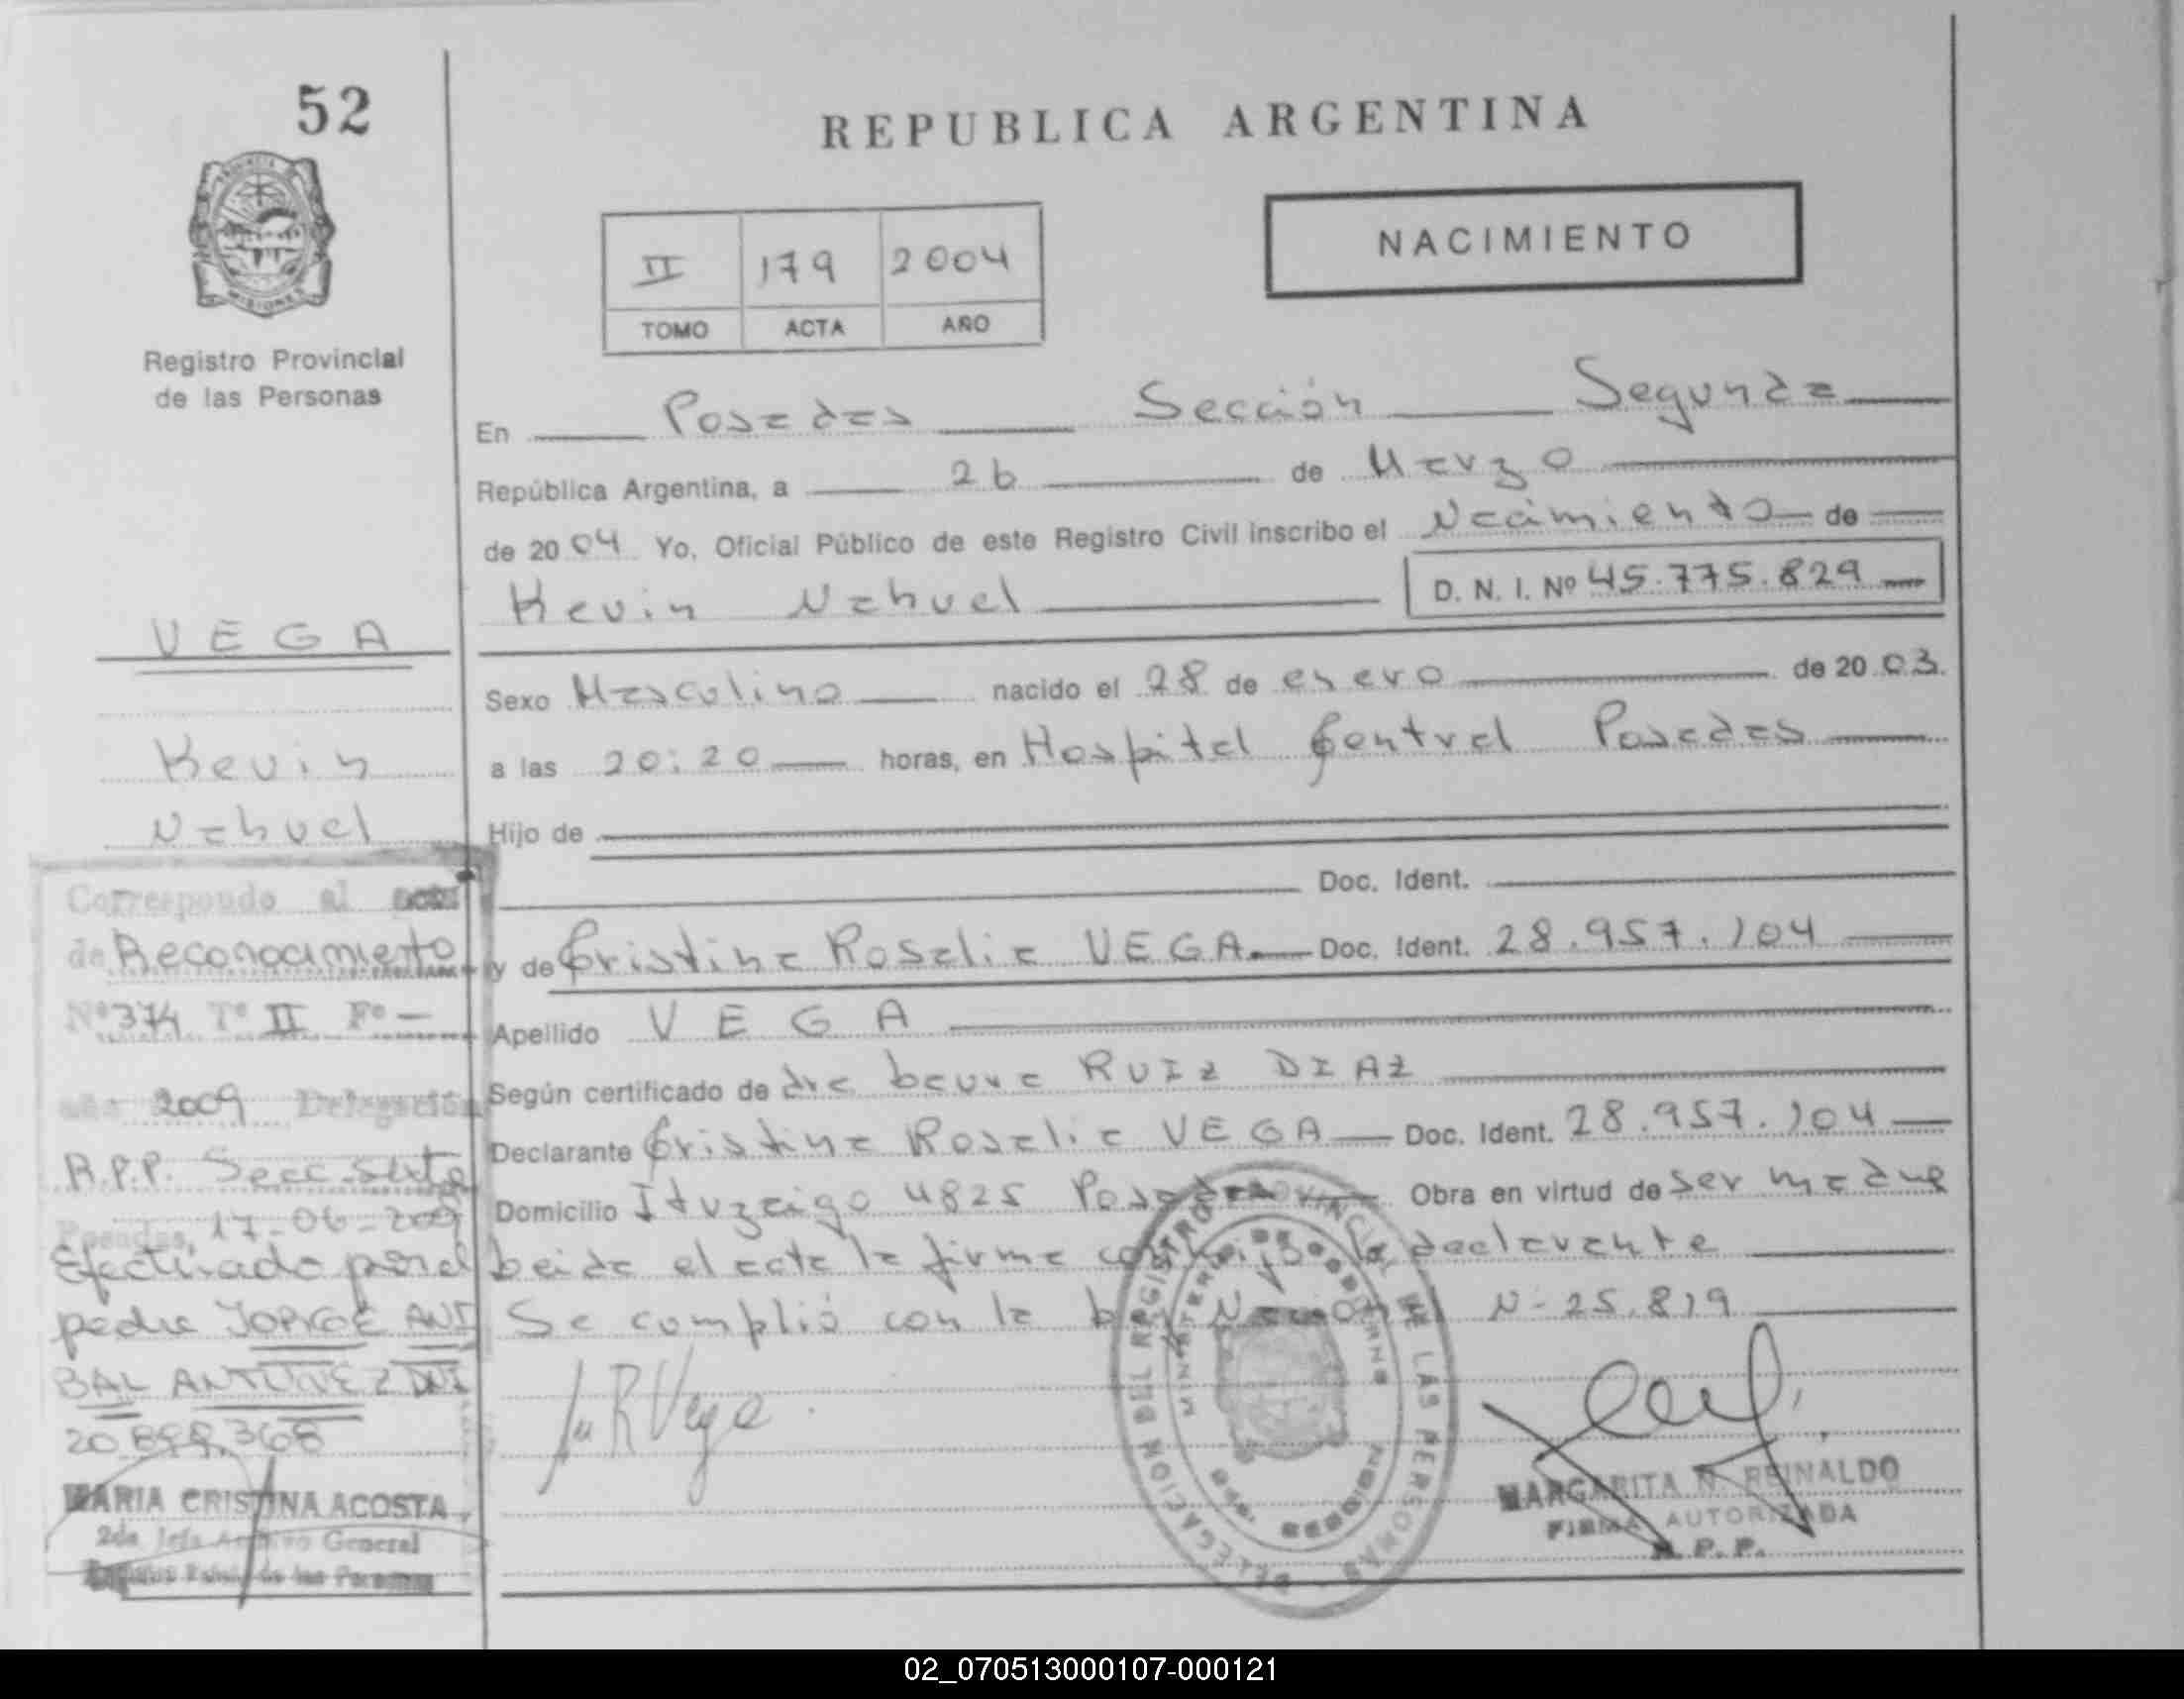 52
REPUBLICA ARGENTINA
PROVINCIA
MISIONES
Registro Provincial
de las Personas
II 179 2004
TOMO ACTA AÑO
NACIMIENTO
En Posadas Sección Segunda
República Argentina, a 26 de Marzo
de 2004 Yo, Oficial Público de este Registro Civil inscribo el Nacimiento de
Kevin Nahuel
D. N. I. Nº 45.775.829
VEGA
Kevin
Nahuel
Sexo Masculino nacido el 28 de enero de 2003.
a las 20:20 horas, en Hospital Central Posadas
Hijo de
Doc. Ident.
y de Cristina Rosalia VEGA Doc. Ident. 28.957.104
Apellido VEGA
Según certificado de dra Laura RUIZ DIAZ
Declarante Cristina Rosalia VEGA Doc. Ident. 28.957.104
Domicilio Ituzaigo 4825 Posadas Obra en virtud de ser madre
Leida el acta la firma conmigo la declarante
Se cumplió con la Ley Nacional N-25.819
Corresponde al acta
de Reconocimiento
Nº 374 Tº II Fº -
año 2009 Delegación
R.P.P. Secc. Sexta
Posadas, 17-06-2009
Efectuado por el
padre JORGE ANI
BAL ANTUNEZ DNI
MARIA CRISTINA ACOSTA
2da Jefa Archivo General
de las Personas
CRVega
DELEGACION DEL REGISTRO PROVINCIAL DE LAS PERSONAS
MINISTERIO DE GOBIERNO
MISIONES
MARGARITA N. REINALDO
FIRMA AUTORIZADA
R. P. P.
02_070513000107-000121